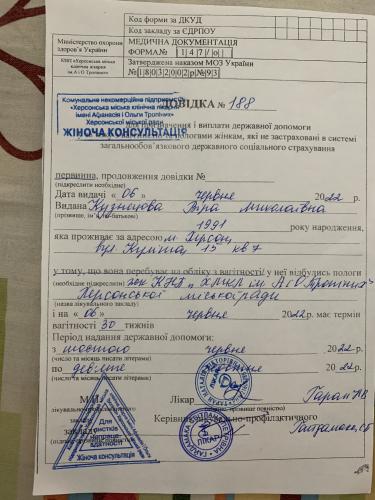 Код форми за ДКУД
Код закладу за ЄДРПОУ
Міністерство охорони здоров'я України
МЕДИЧНА ДОКУМЕНТАЦІЯ
ФОРМА№ |1|4|7|/|о|
КНП «Херсонська міська клінічна лікарня ім.А і О Тропіних»
Затверджена наказом МОЗ України
№|1|8|0|3|2|0|0|2|р|№|9|3|
Комунальне некомерційне підприємство
«Херсонська міська клінічна лікарня
імені Афанасія і Ольги Тропіних»
Херсонської міської ради
ЖІНОЧА КОНСУЛЬТАЦІЯ
ДОВІДКА № 188
і виплати державної допомоги
пологами жінкам, які не застраховані в системі
загальнообов'язкового державного соціального страхування
первинна, продовження довідки №
(підкреслити необхідне)
Дата видачі « 06 » червня 2022 р.
Видана Кузнецова Віра Миколаївна
(прізвище, ім'я, по-батькові)
1991 року народження,
яка проживає за адресою м. Херсон
вул. Куліша 15 кв 7
у тому, що вона перебуває на обліку з вагітності/ у неї відбулись пологи
(необхідне підкреслити) КНП „ХМКЛ ім. А і О Тропіних"
Херсонської міської ради
(назва лікувального закладу)
і на « 06 » червня 2022р. має термін
вагітності 30 тижнів
Період надання державної допомоги:
з шостого червня 2022 р.
(число та місяць писати літерами)
по 2022 р.
(число та місяць писати літерами)
М.П. Лікар
(підпис, прізвище повністю)
Керівник лікувально-профілактичного
ЛІКАР
Для листків непрацездатності
Жіноча консультація